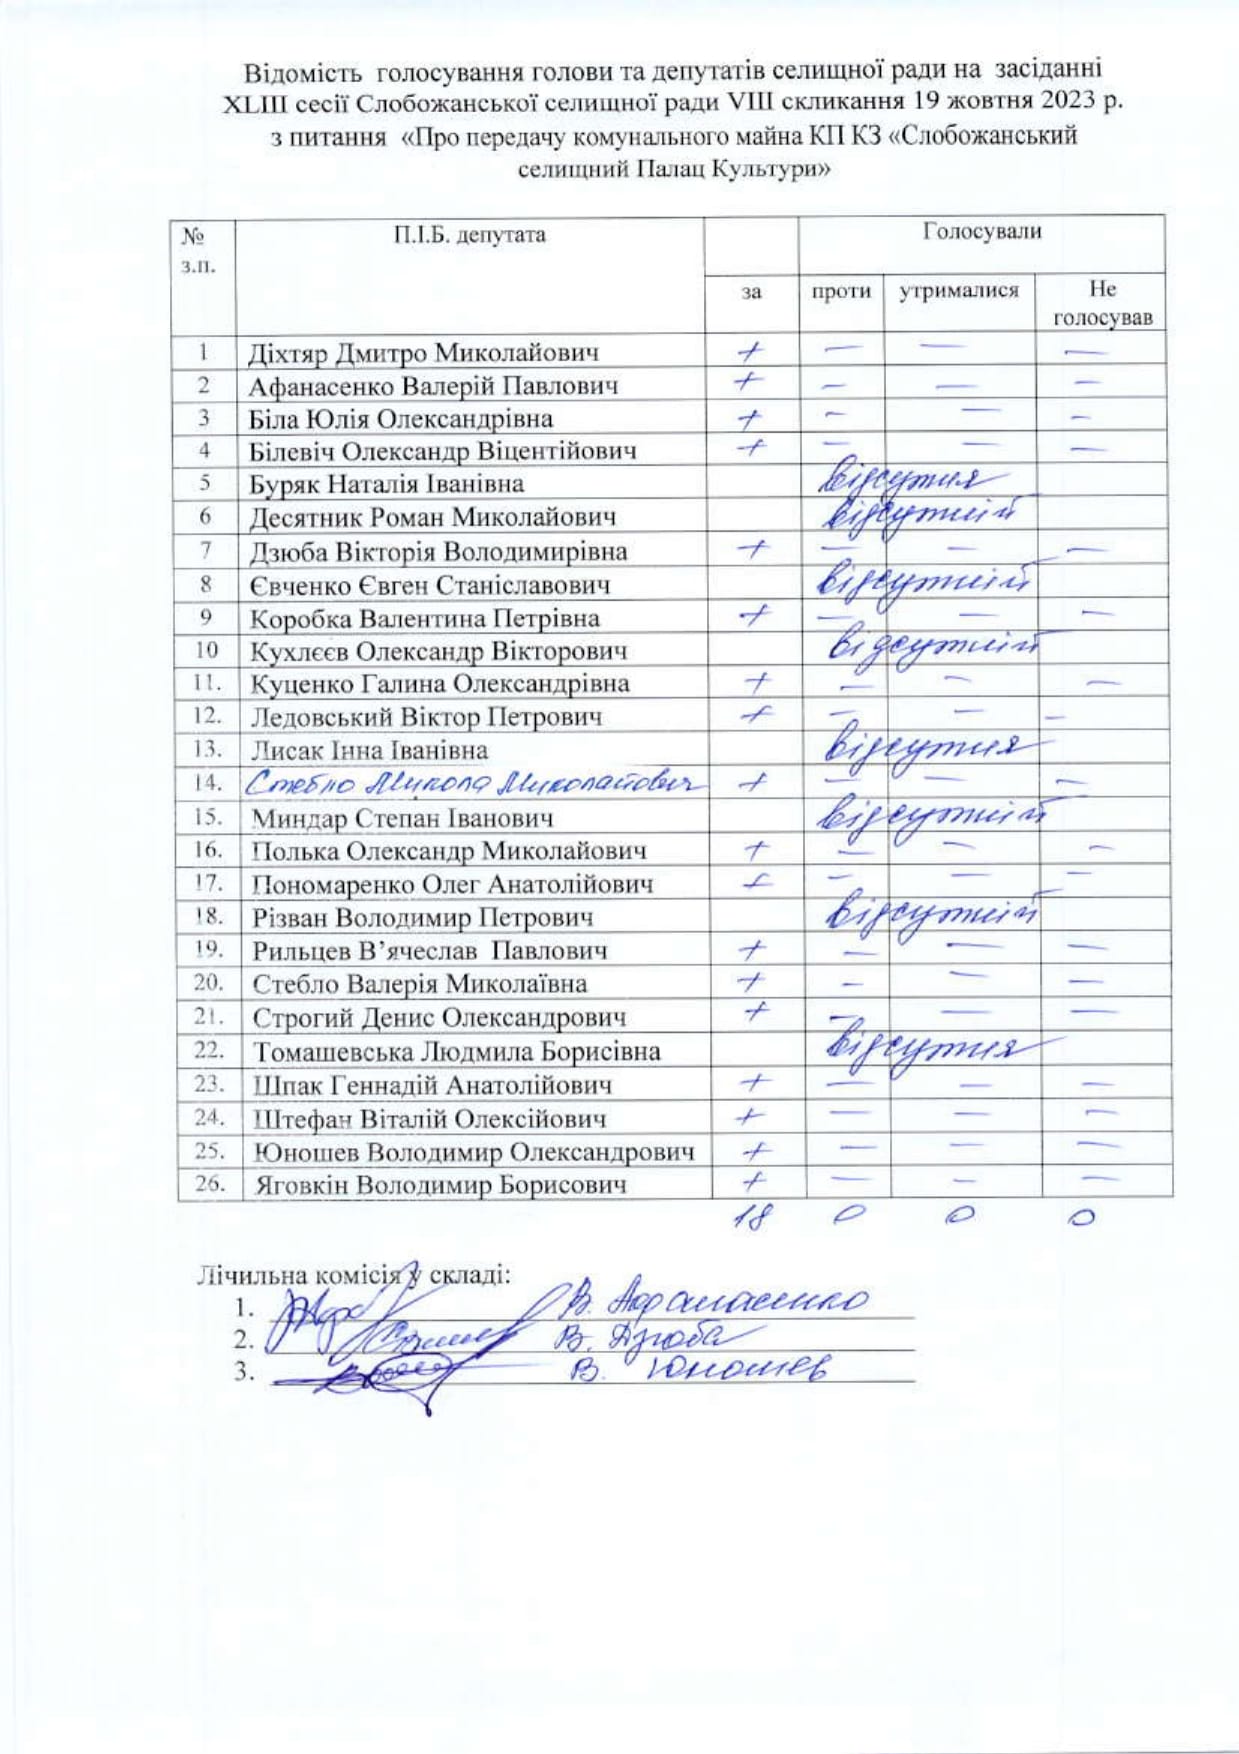 Відомість голосування голови та депутатів селищної ради на засіданні
XLIII сесії Слобожанської селищної ради VIII скликання 19 жовтня 2023 р.
з питання «Про передачу комунального майна КП КЗ «Слобожанський
селищний Палац Культури»
№ з.п. П.І.Б. депутата Голосували
за проти утрималися Не голосував
1 Діхтяр Дмитро Миколайович + — — —
2 Афанасенко Валерій Павлович + — — —
3 Біла Юлія Олександрівна + — — —
4 Білевіч Олександр Віцентійович + — — —
5 Буряк Наталія Іванівна відсутня
6 Десятник Роман Миколайович відсутній
7 Дзюба Вікторія Володимирівна + — — —
8 Євченко Євген Станіславович відсутній
9 Коробка Валентина Петрівна + — — —
10 Кухлєєв Олександр Вікторович відсутній
11. Куценко Галина Олександрівна + — — —
12. Ледовський Віктор Петрович + — — —
13. Лисак Інна Іванівна відсутня
14. Стебло Микола Миколайович + — — —
15. Миндар Степан Іванович відсутній
16. Полька Олександр Миколайович + — — —
17. Пономаренко Олег Анатолійович + — — —
18. Різван Володимир Петрович відсутній
19. Рильцев В’ячеслав Павлович + — — —
20. Стебло Валерія Миколаївна + — — —
21. Строгий Денис Олександрович + — — —
22. Томашевська Людмила Борисівна відсутня
23. Шпак Геннадій Анатолійович + — — —
24. Штефан Віталій Олексійович + — — —
25. Юношев Володимир Олександрович + — — —
26. Яговкін Володимир Борисович + — — —
18 0 0 0
Лічильна комісія у складі:
1. В. Афанасенко
2. В. Дзюба
3. В. Юношев